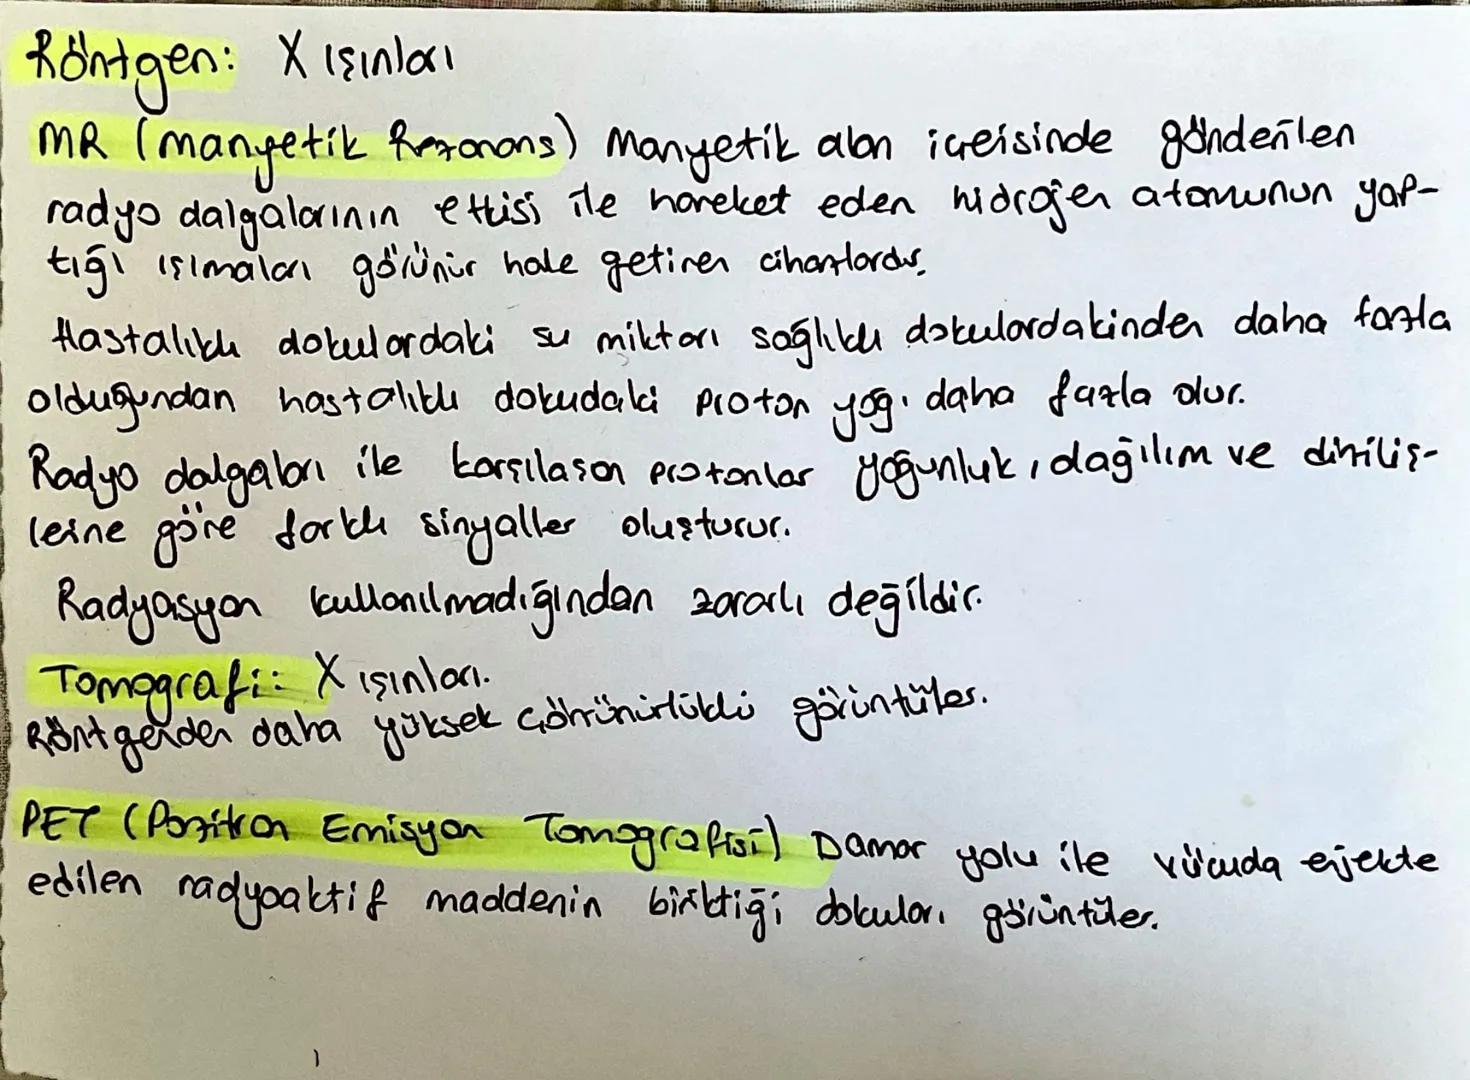 Röntgen: X ışınları
MR (manyetik Rezonans) Manyetik alan içerisinde gönderilen
radyo dalgalarının etkisi ile hareket eden hidrojen atomunun yap-
tığı ışımaları görünür hale getiren cihazlardır.
Hastalıklı dokulardaki su miktarı sağlıklı dokulardakinden daha fazla
olduğundan hastalıklı dokudaki proton yoğ. daha fazla olur.
Radyo dalgaları ile karşılaşan protonlar yoğunluk, dağılım ve diziliş-
lerine göre farklı sinyaller oluşturur.
Radyasyon kullanılmadığından zararlı değildir.
Tomografi: X ışınları.
Röntgenden daha yüksek çözünürlüklü görüntüler.
PET (Pozitron Emisyon Tomografisi) Damar yolu ile vücuda enjekte
edilen radyoaktif maddenin biriktiği dokuları görüntüler.